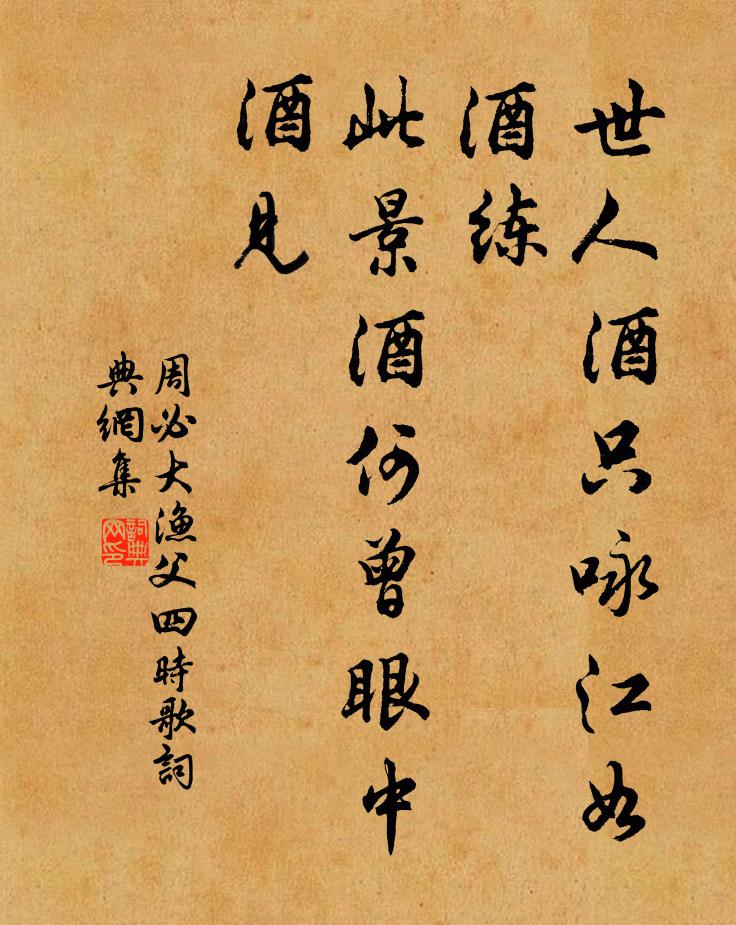 世人酒只咏江如
酒练
此景酒何曾眼中
酒见
周必大渔父四時歌詞
典網集
詞典网印